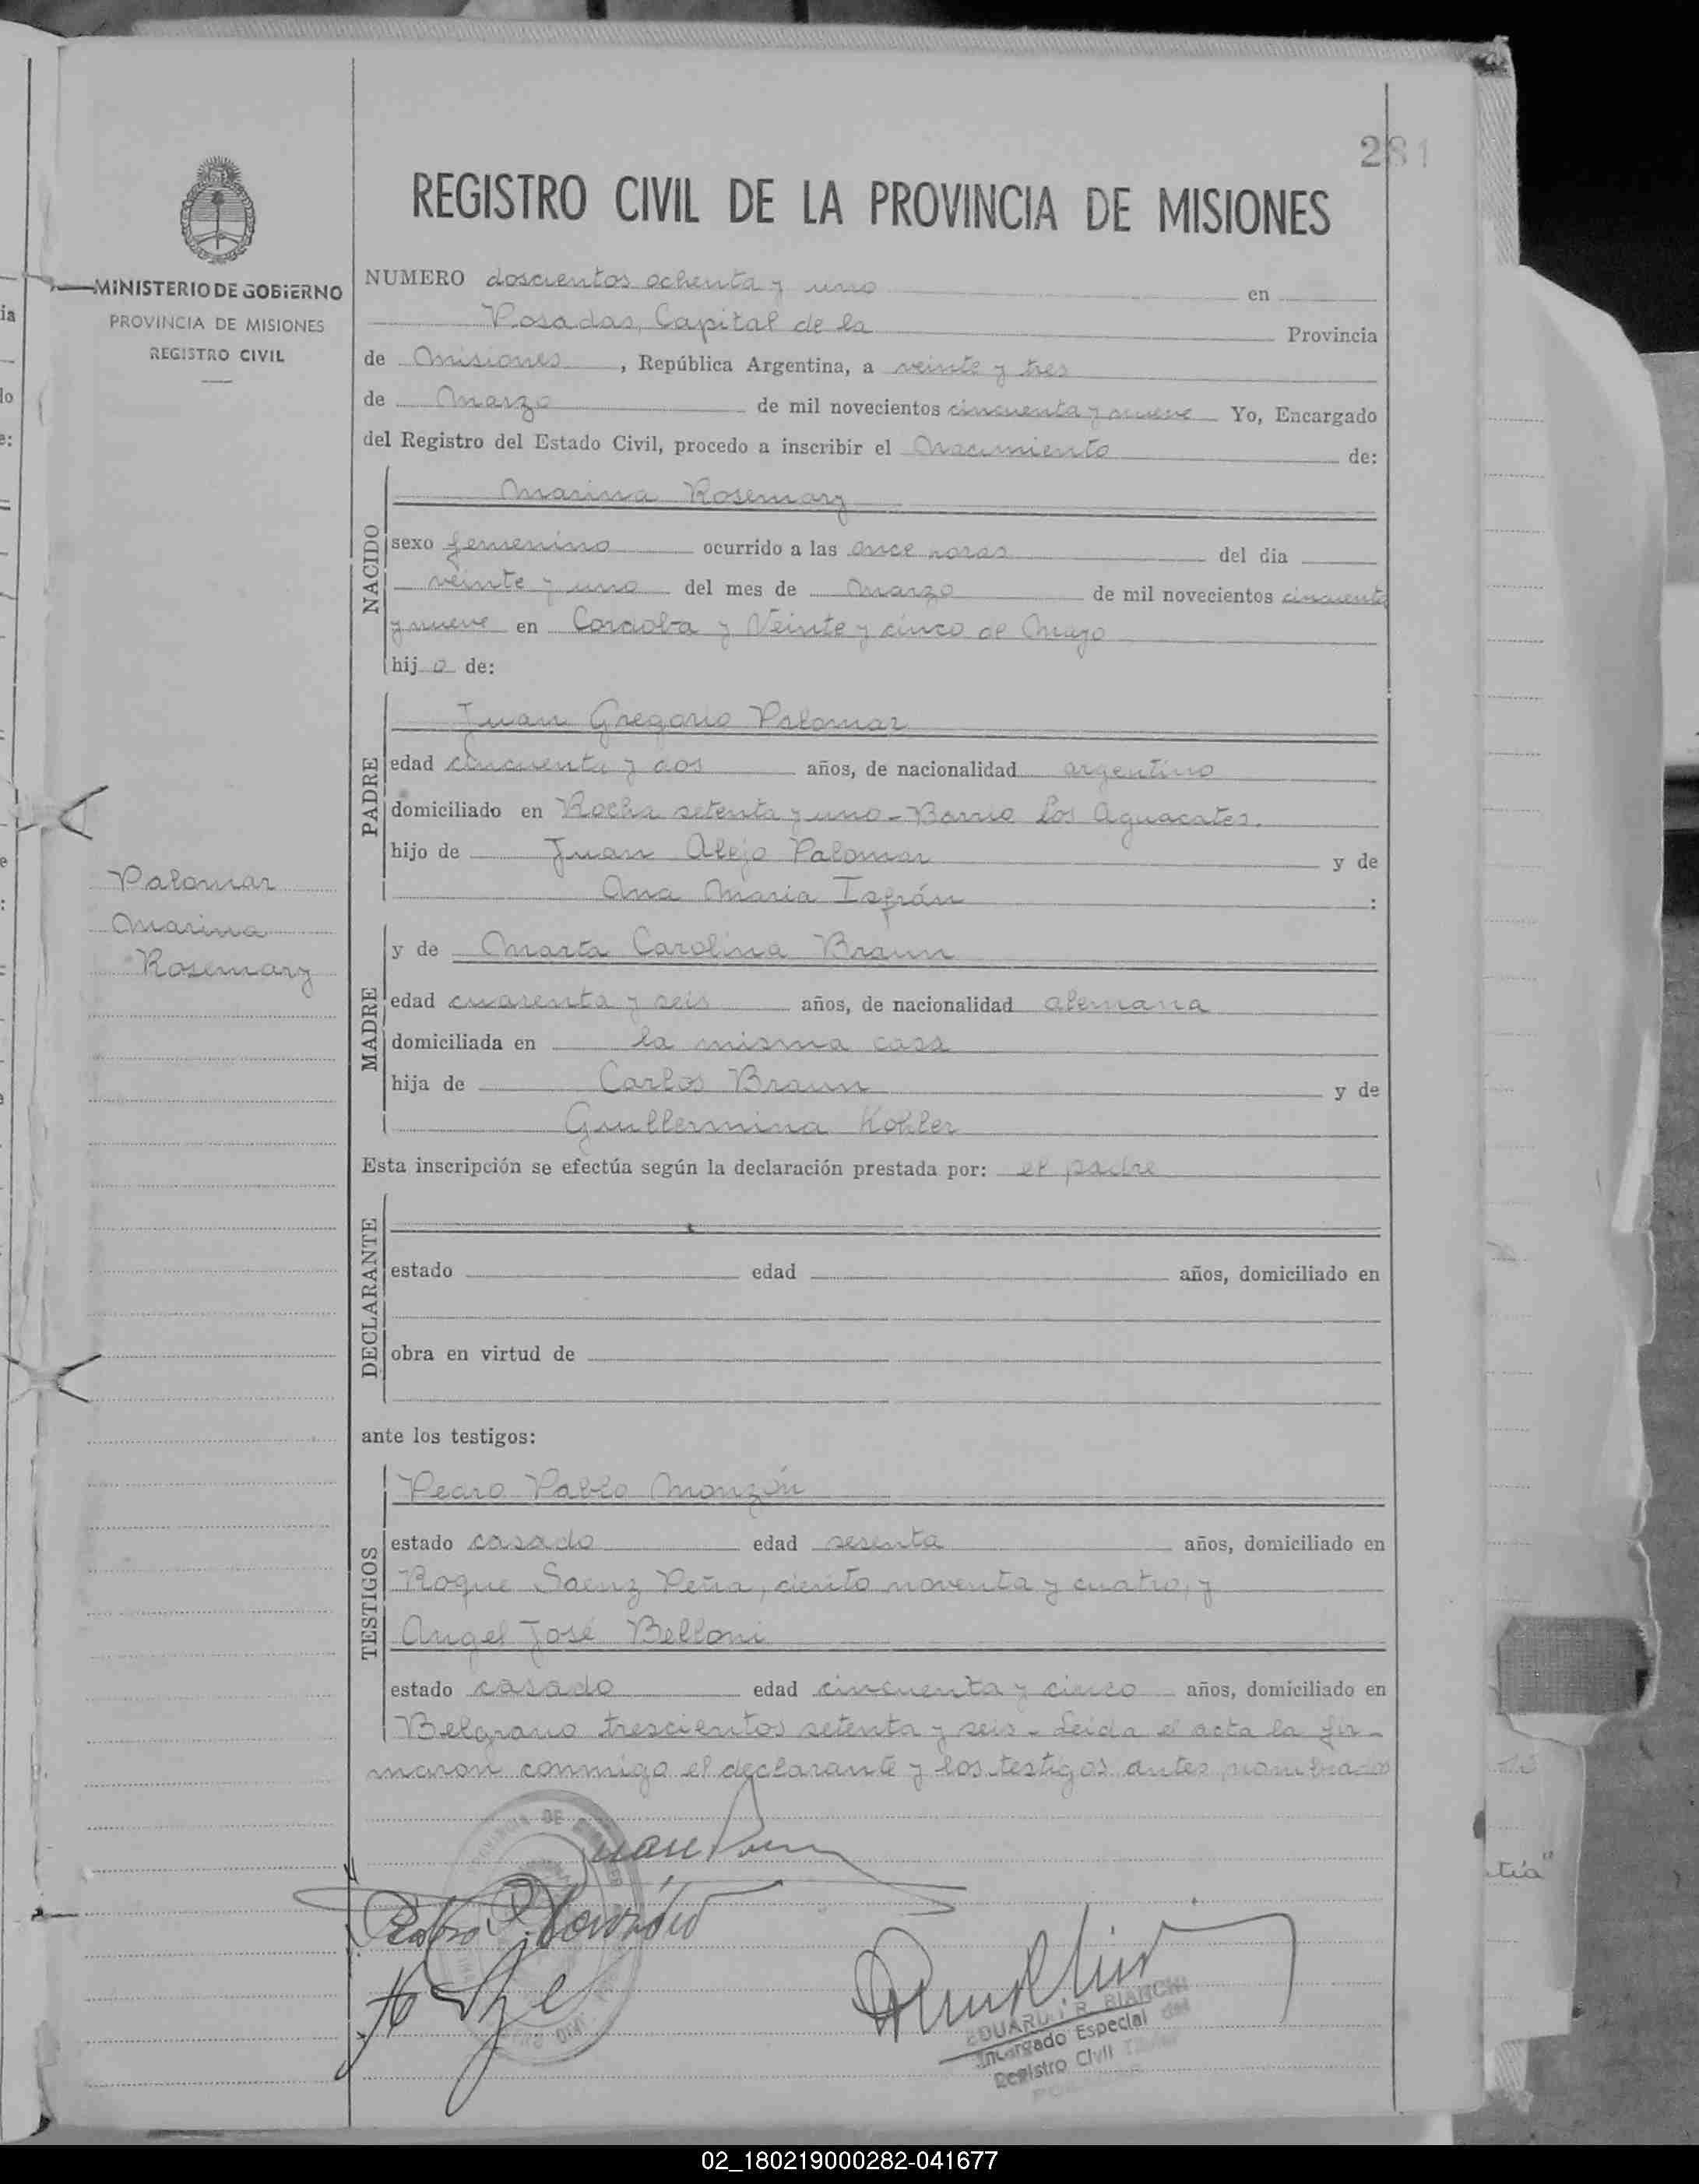 281
REGISTRO CIVIL DE LA PROVINCIA DE MISIONES
MINISTERIO DE GOBIERNO
PROVINCIA DE MISIONES
REGISTRO CIVIL
NUMERO doscientos ochenta y uno en
Posadas, Capital de la Provincia
de Misiones, República Argentina, a veinte y tres
de Marzo de mil novecientos cincuenta y nueve Yo, Encargado
del Registro del Estado Civil, procedo a inscribir el Nacimiento de:
NACIDO
Marina Rosemary
sexo femenino ocurrido a las once horas del dia
veinte y uno del mes de Marzo de mil novecientos cincuenta
y nueve en Cordoba y Veinte y cinco de Mayo
hij a de:
PADRE
Juan Gregorio Palomar
edad cincuenta y dos años, de nacionalidad argentino
domiciliado en Rocha setenta y uno - Barrio Los Aguacates.
hijo de Juan Alejo Palomar y de
Ana Maria Isfrán :
Palomar
Marina
Rosemary
MADRE
y de Marta Carolina Braun
edad cuarenta y seis años, de nacionalidad alemana
domiciliada en la misma casa
hija de Carlos Braun y de
Guillermina Kohler
Esta inscripción se efectúa según la declaración prestada por: el padre
DECLARANTE
estado edad años, domiciliado en
obra en virtud de
ante los testigos:
TESTIGOS
Pedro Pablo Monzón
estado casado edad sesenta años, domiciliado en
Roque Saenz Peña, ciento noventa y cuatro, y
Angel José Belloni
estado casado edad cincuenta y cinco años, domiciliado en
Belgrano trescientos setenta y seis - Leida el acta la fir-
maron conmigo el declarante y los testigos antes nombrados
Juan
Pedro P. Monzón
EDUARDO R. BIANCHI
Encargado Especial del
Registro Civil
tia"
02_180219000282-041677